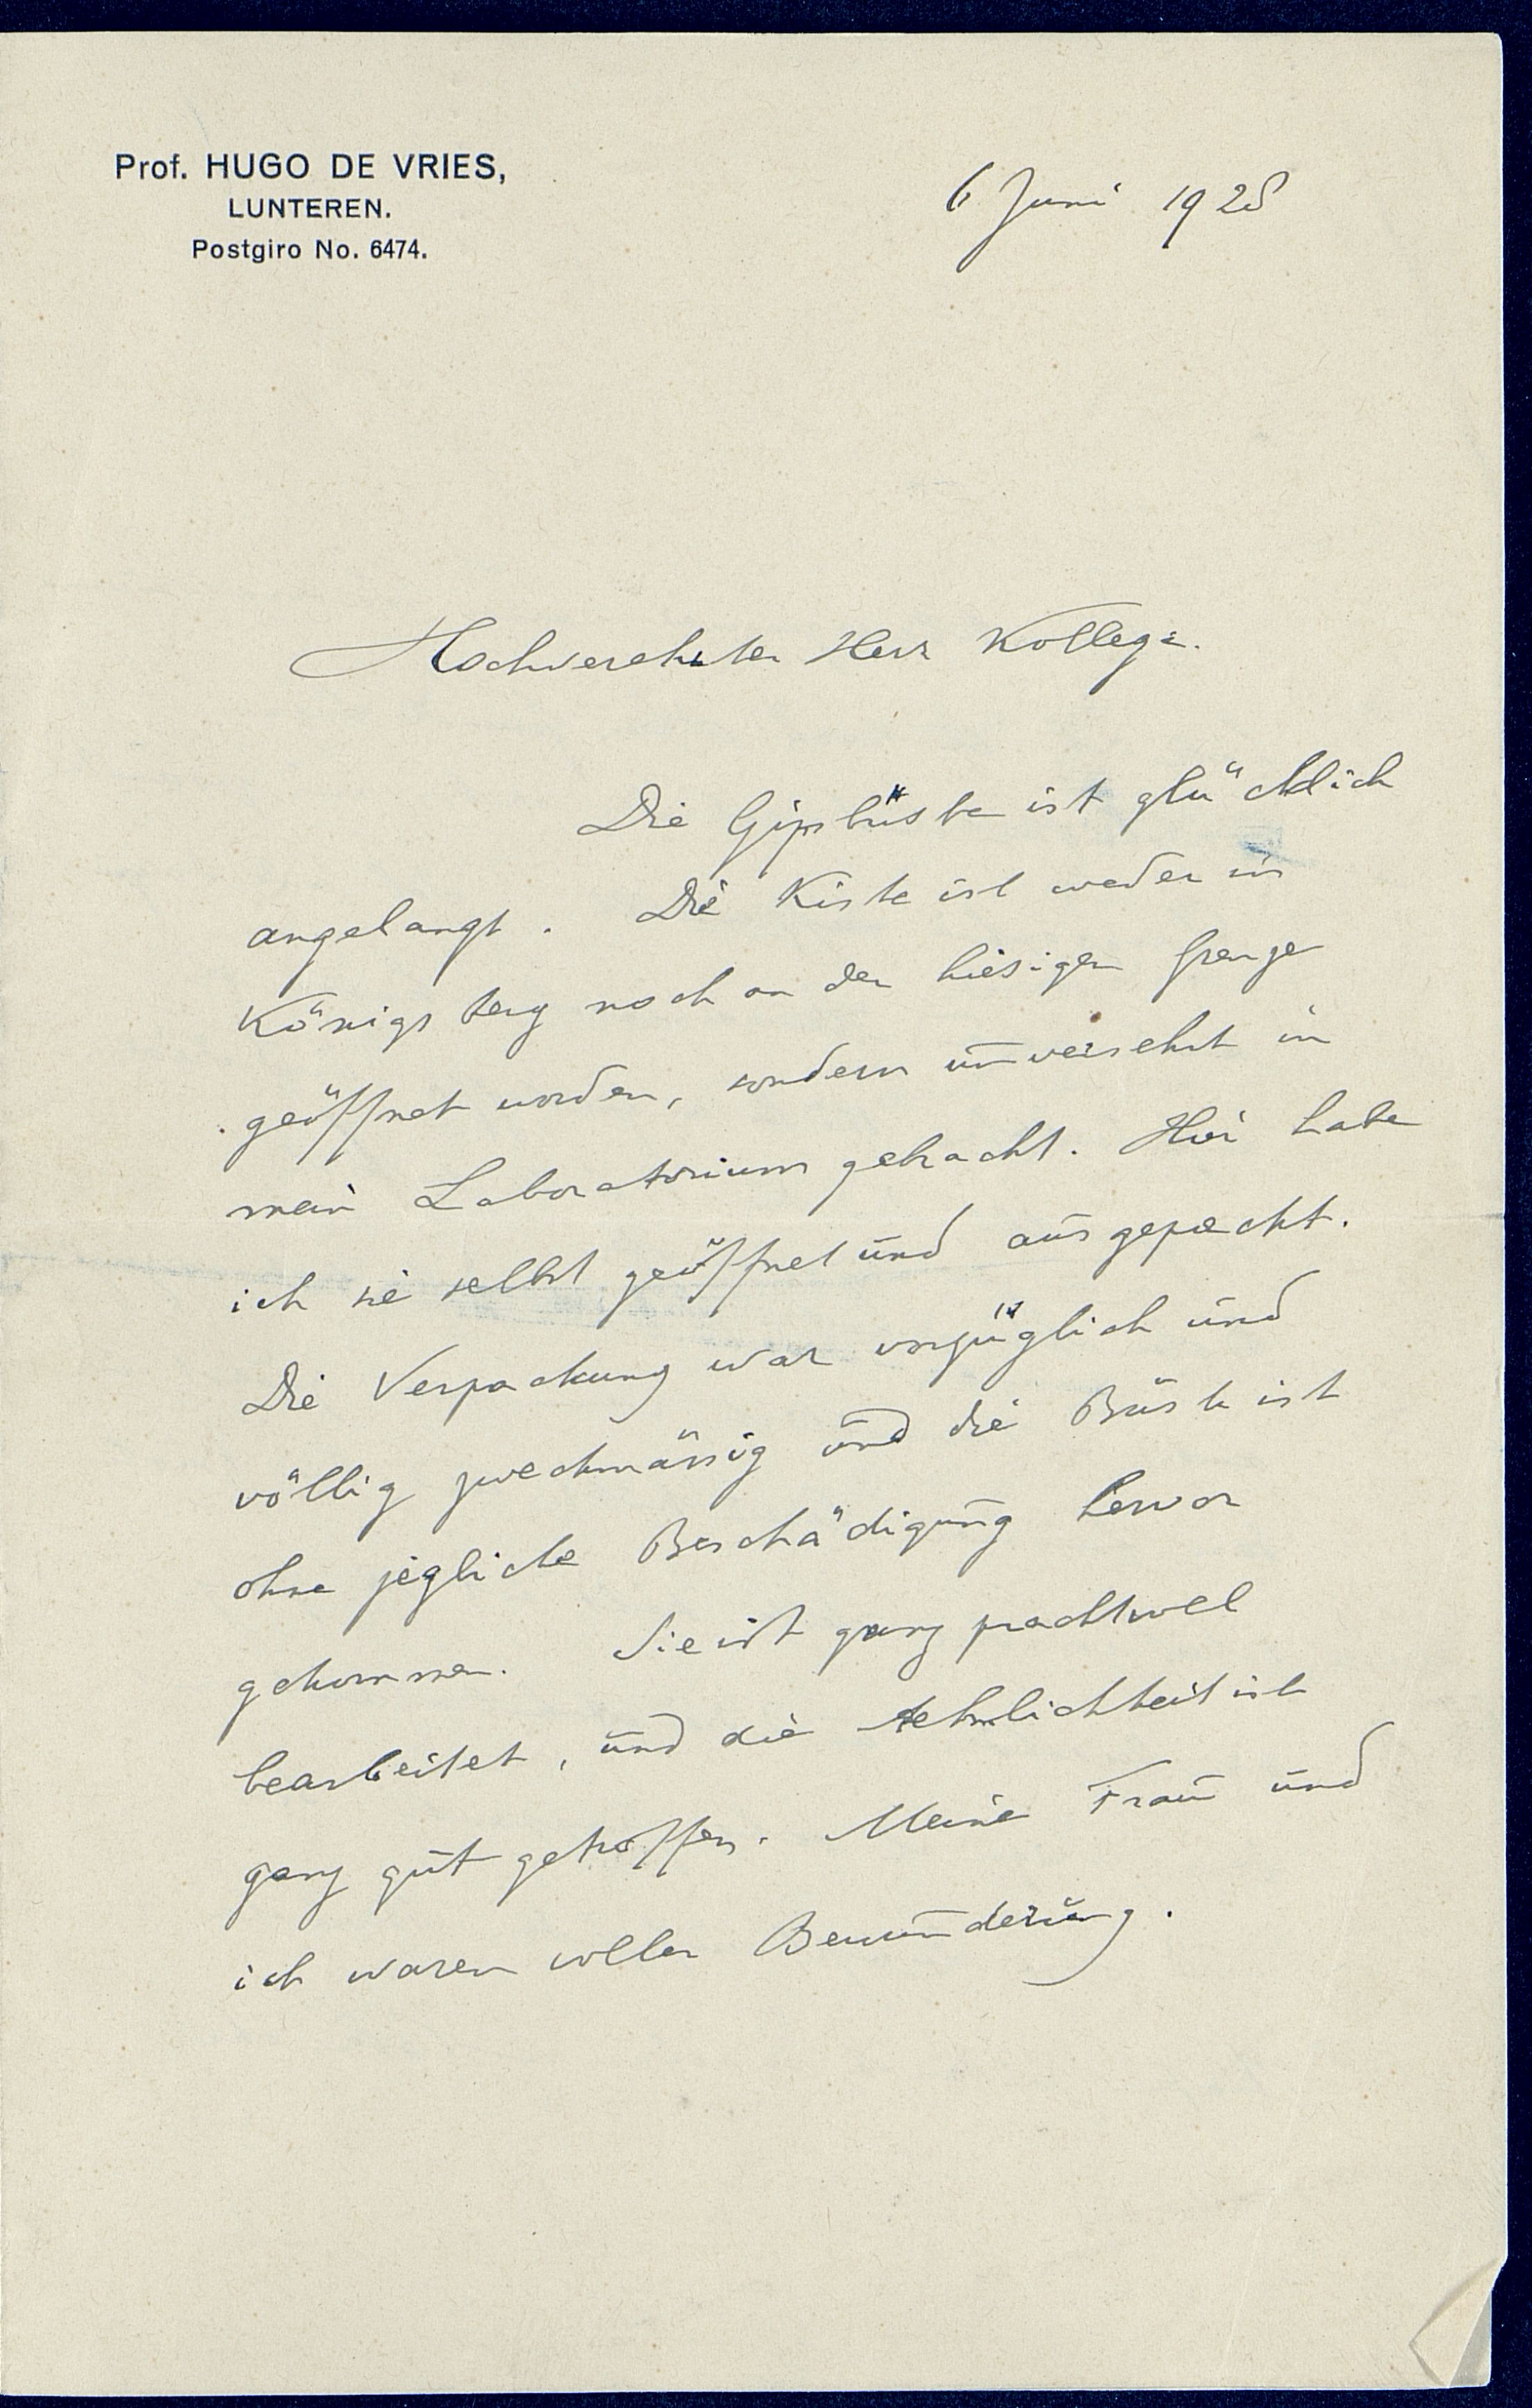 Prof. HUGO DE VRIES,
LUNTEREN.
Postgiro No. 6474.
6 Juni 1928
Hochverehrter Herr Kollege.
Die Gipsbüste ist glücklich
angelangt. Die Kiste ist weder in
Königsberg noch an der hiesigen Grenze
geöffnet worden, sondern unversehrt in
mein Laboratorium gebracht. Hier habe
ich sie selbst geöffnet und ausgepackt.
Die Verpackung war vorzüglich und
völlig zweckmässig und die Büste ist
ohne jegliche Beschädigung hervor
gekommen. Sie ist ganz prachtvoll
bearbeitet, und die Aehnlichkeit ist
ganz gut getroffen. Meine Frau und
ich waren voller Bewunderung.